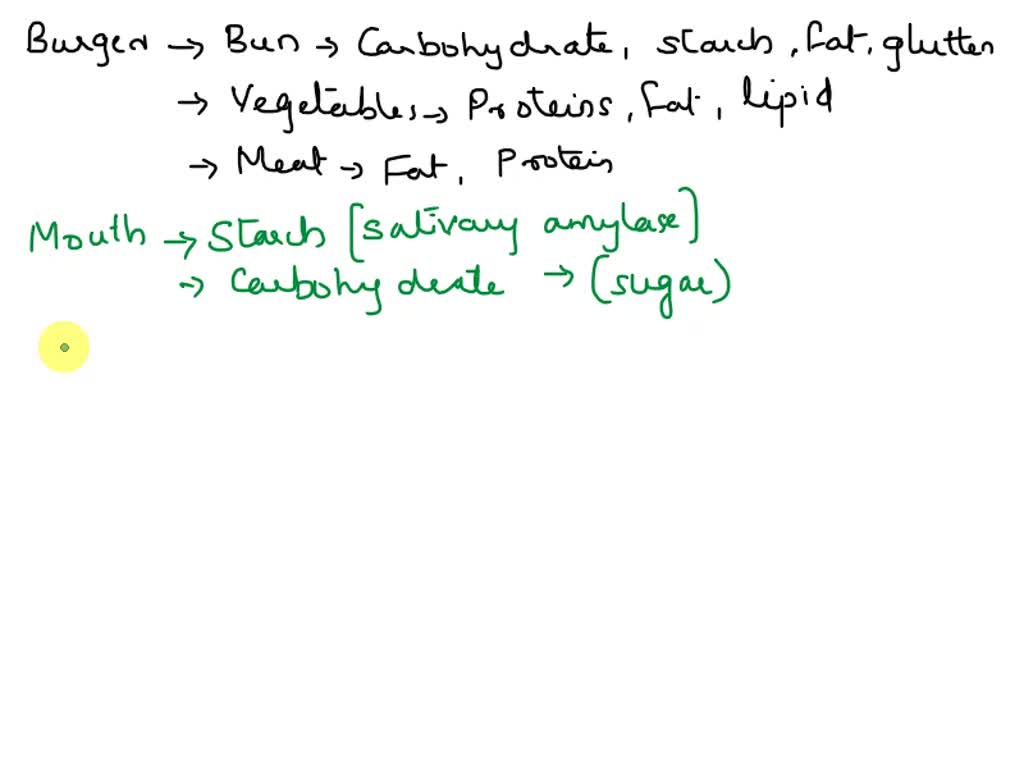 Burger → Bun → Carbohydrate, starch, fat, glutten
→ Vegetables → Proteins, fat, lipid
→ Meat → Fat, Protein
Mouth → Starch [salivary amylase]
→ Carbohydrate → (sugar)